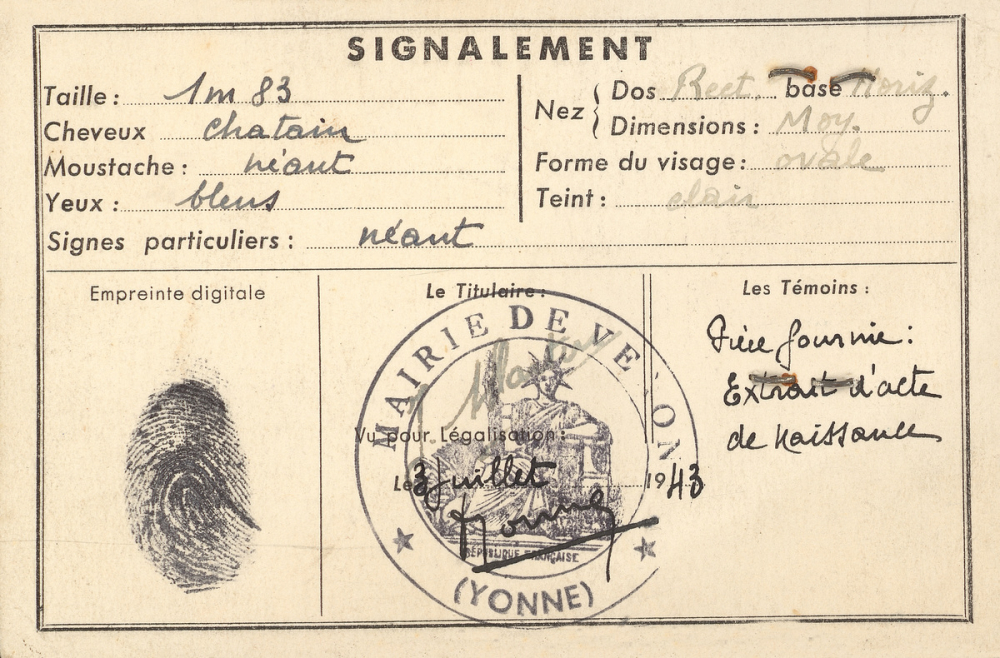 SIGNALEMENT
Taille : 1m 83
Cheveux chatain
Moustache : néant
Yeux : bleus
Signes particuliers : néant
Nez { Dos Rect. base Horiz.
Dimensions : Moy.
Forme du visage : ovale
Teint : clair
Empreinte digitale
Le Titulaire :
MAIRIE DE VERON
Vu pour Légalisation :
Le 3 Juillet 1943
RÉPUBLIQUE FRANÇAISE
(YONNE)
Les Témoins :
Pièce fournie :
Extrait d'acte
de naissance